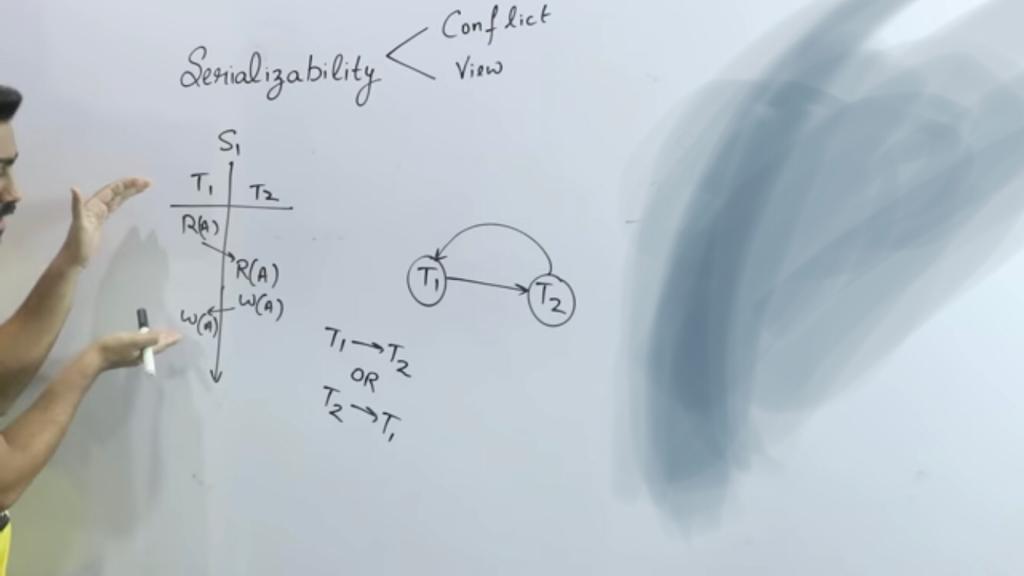 Serializability
Conflict
View
S1
T1 T2
R(A)
R(A)
W(A)
W(A)
T1
T2
T1 → T2
OR
T2 → T1